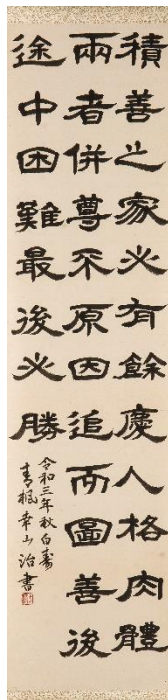 積善之家必有餘慶人格肉體
兩者併尊不原因追而圖善後
途中困難最後必勝
令和三年秋白壽
青楓幸山治書